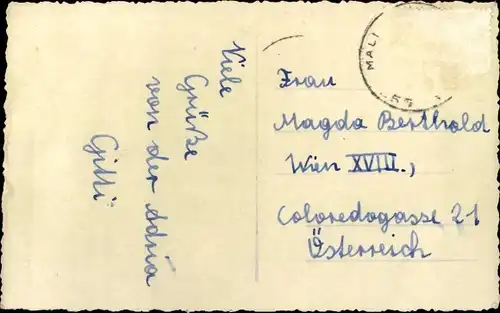 Viele
Grüße
von der Adria
Gitti
MALI
55
Frau
Magda Berthold
Wien XVIII.,
Coloredogasse 21
Österreich